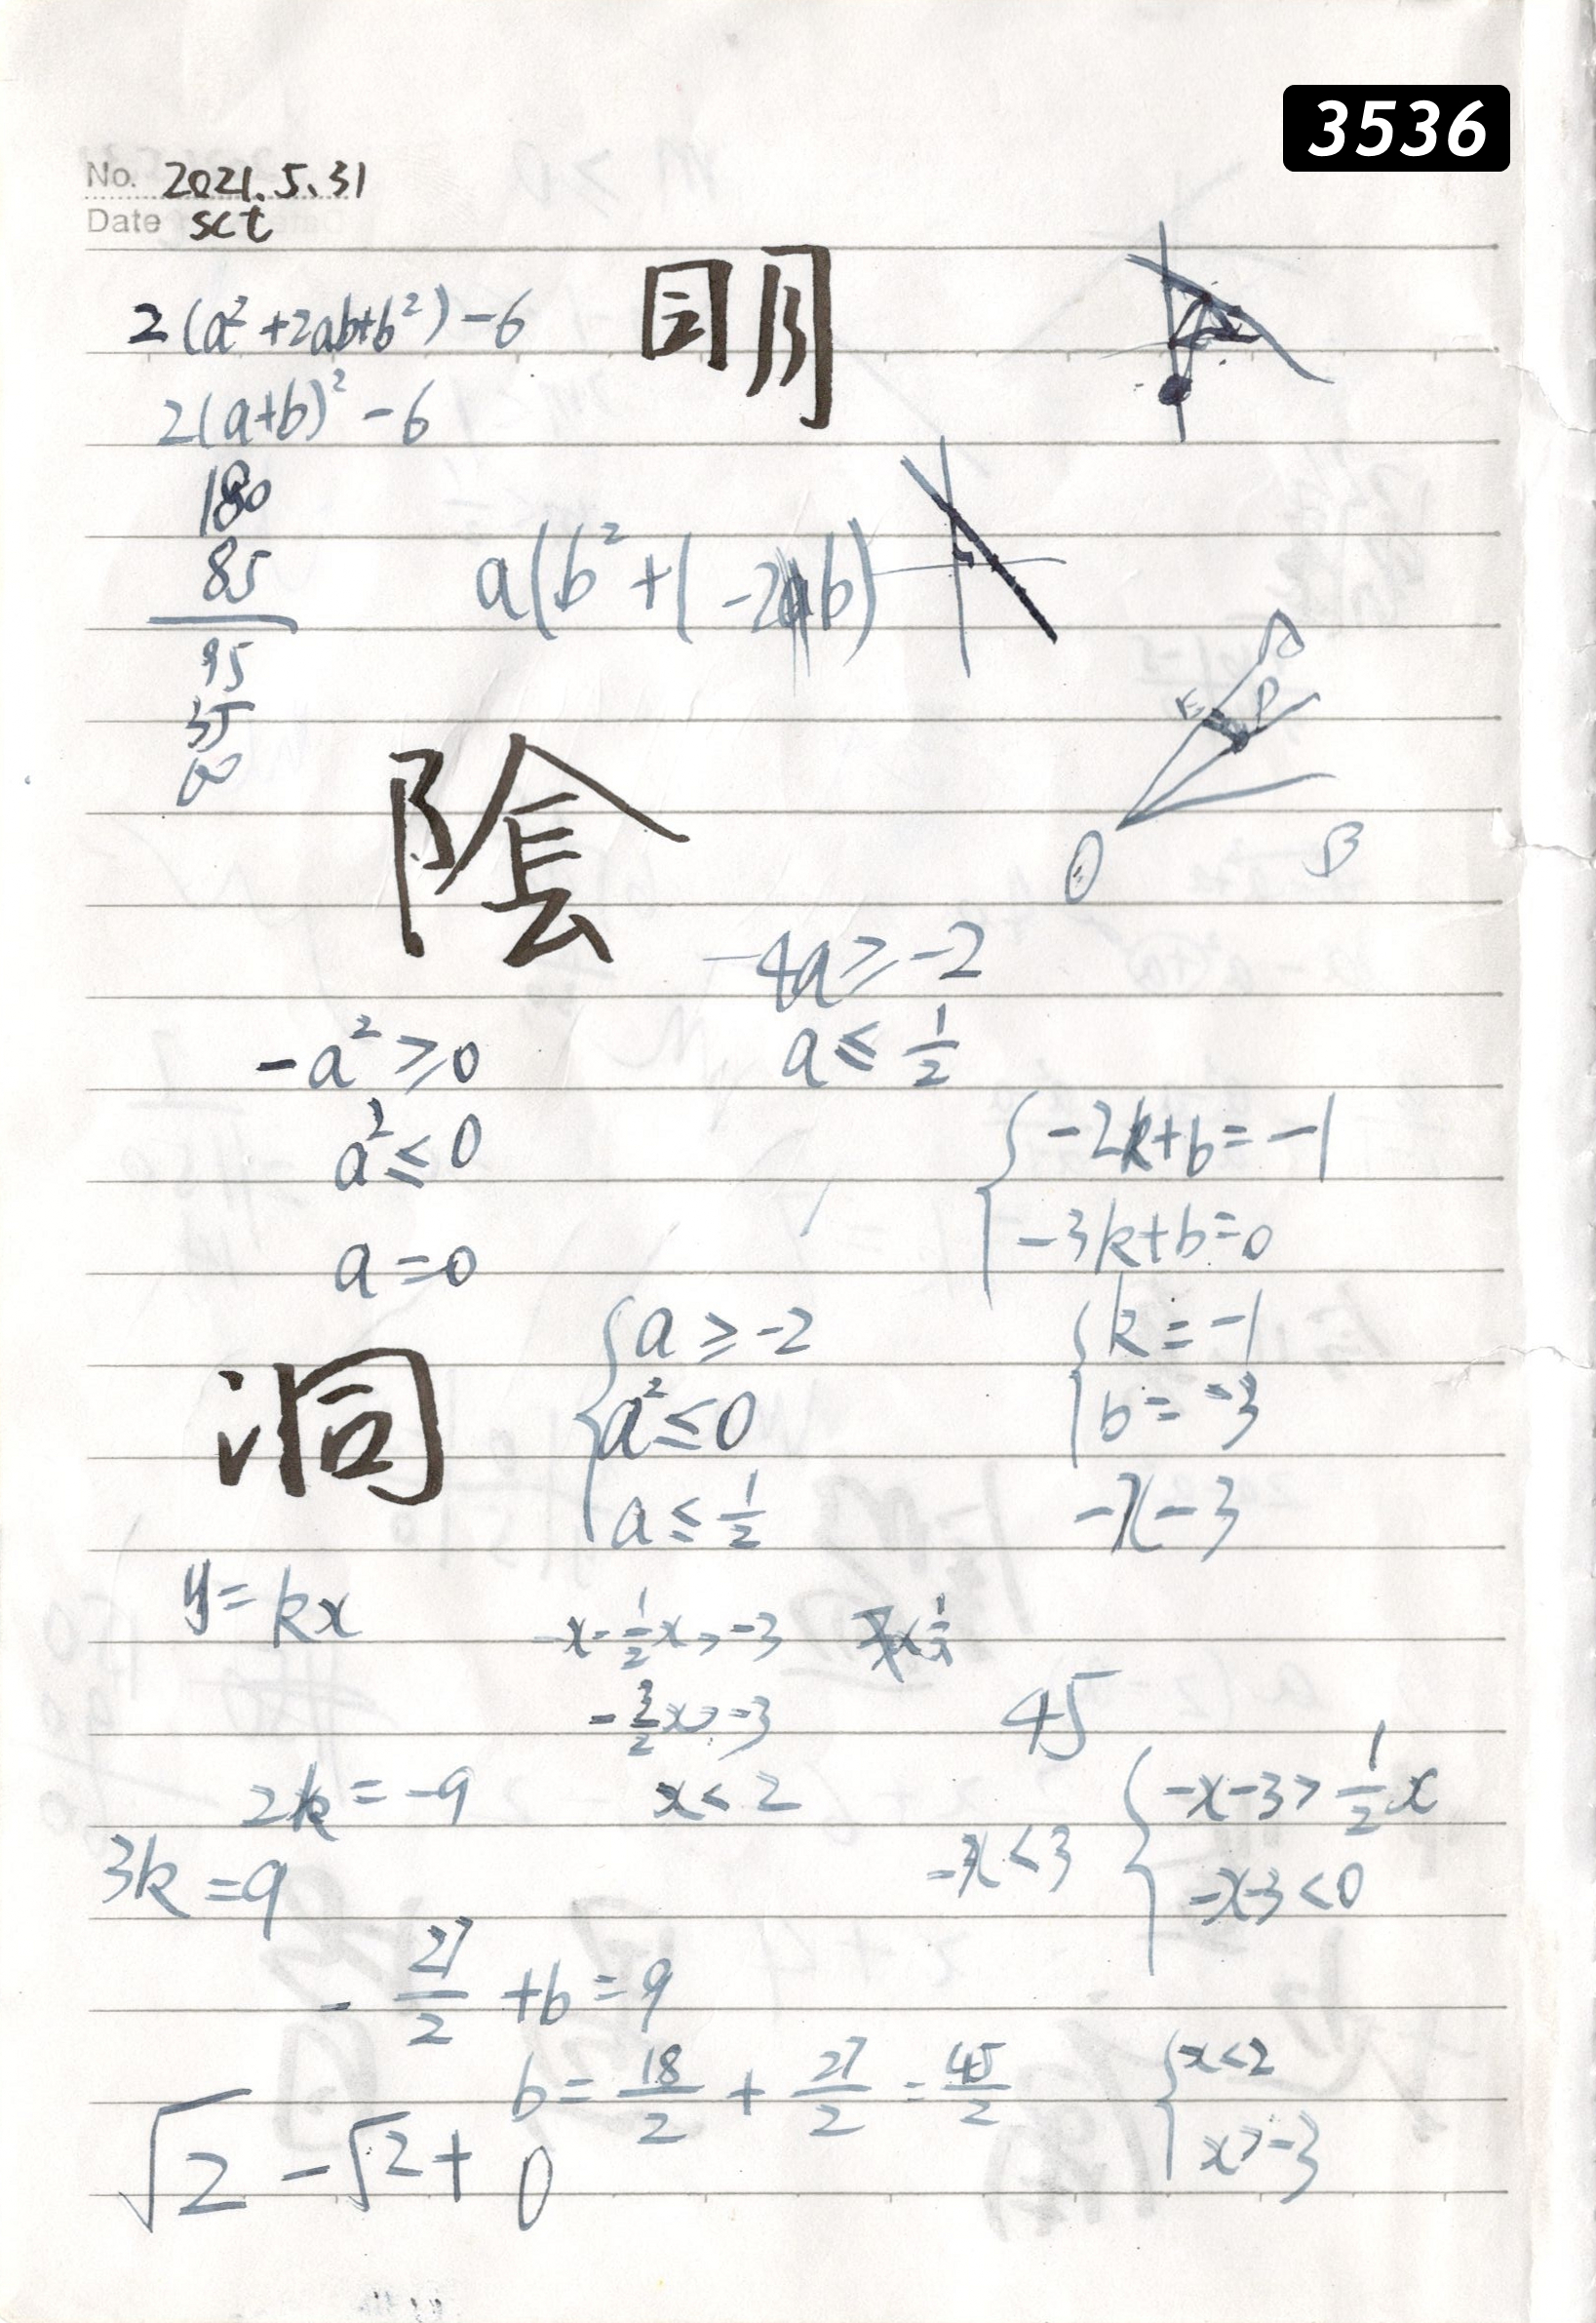 3536
No. 2021.5.31
Date sct
2(a²+2ab+b²)-6
明
2(a+b)²-6
180
85
95
35
60
a(b²+1-2ab)
A
E P
O B
陰
-4a≥-2
a≤1/2
-a²≥0
a²≤0
a=0
{-2k+b=-1
-3k+b=0
{k=-1
b=-3
-x-3
{a≥-2
a²≤0
a≤1/2
洞
y=kx
-x-1/2x>-3
-3/2x>-3
x<2
45
2k=-9
3k=9
-x<3
{-x-3>1/2x
-x-3<0
-27/2+b=9
b=18/2+27/2=45/2
{x<2
x>-3
√2-√2+0